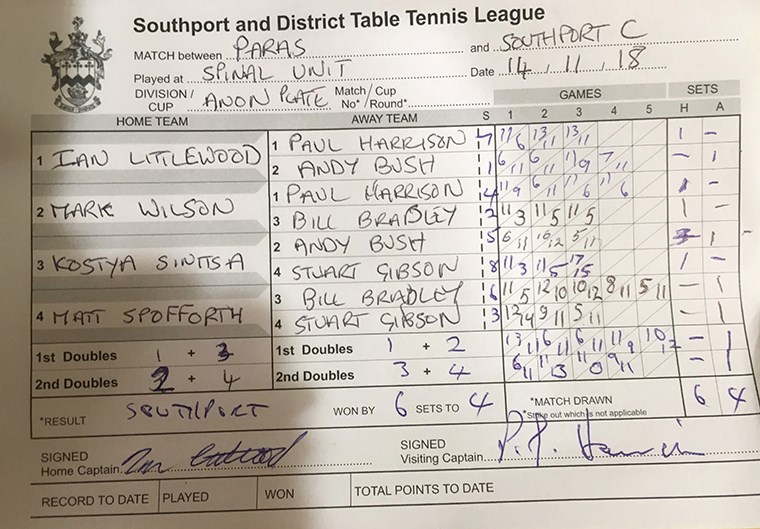 Southport and District Table Tennis League
MATCH between PARAS and SOUTHPORT C
Played at SPINAL UNIT Date 14.11.18
DIVISION / CUP ANON PLATE Match/Cup No*/Round*
GAMES SETS
HOME TEAM AWAY TEAM S 1 2 3 4 5 H A
1 IAN LITTLEWOOD
1 PAUL HARRISON 7 11 6 13 11 13 11 1 -
2 ANDY BUSH 1 6 11 6 11 11 9 7 11 - 1
2 MARK WILSON
1 PAUL HARRISON 4 11 9 6 11 11 6 11 6 1 -
3 BILL BRADLEY 2 11 3 11 5 11 5 1 -
3 KOSTYA SINITSA
2 ANDY BUSH 5 6 11 10 12 5 11 1 -
4 STUART GIBSON 8 11 3 11 5 17 15 1 -
4 MATT SPOFFORTH
3 BILL BRADLEY 6 11 5 12 10 10 12 8 11 5 11 - 1
4 STUART GIBSON 3 12 14 9 11 5 11 - 1
1st Doubles 1 + 3 1st Doubles 1 + 2 13 11 6 11 6 11 11 9 10 12 - 1
2nd Doubles 2 + 4 2nd Doubles 3 + 4 6 11 11 13 11 0 9 11 - 1
*RESULT SOUTHPORT WON BY 6 SETS TO 4 *MATCH DRAWN 6 4
*Strike out which is not applicable
SIGNED Home Captain
SIGNED Visiting Captain
RECORD TO DATE PLAYED WON TOTAL POINTS TO DATE